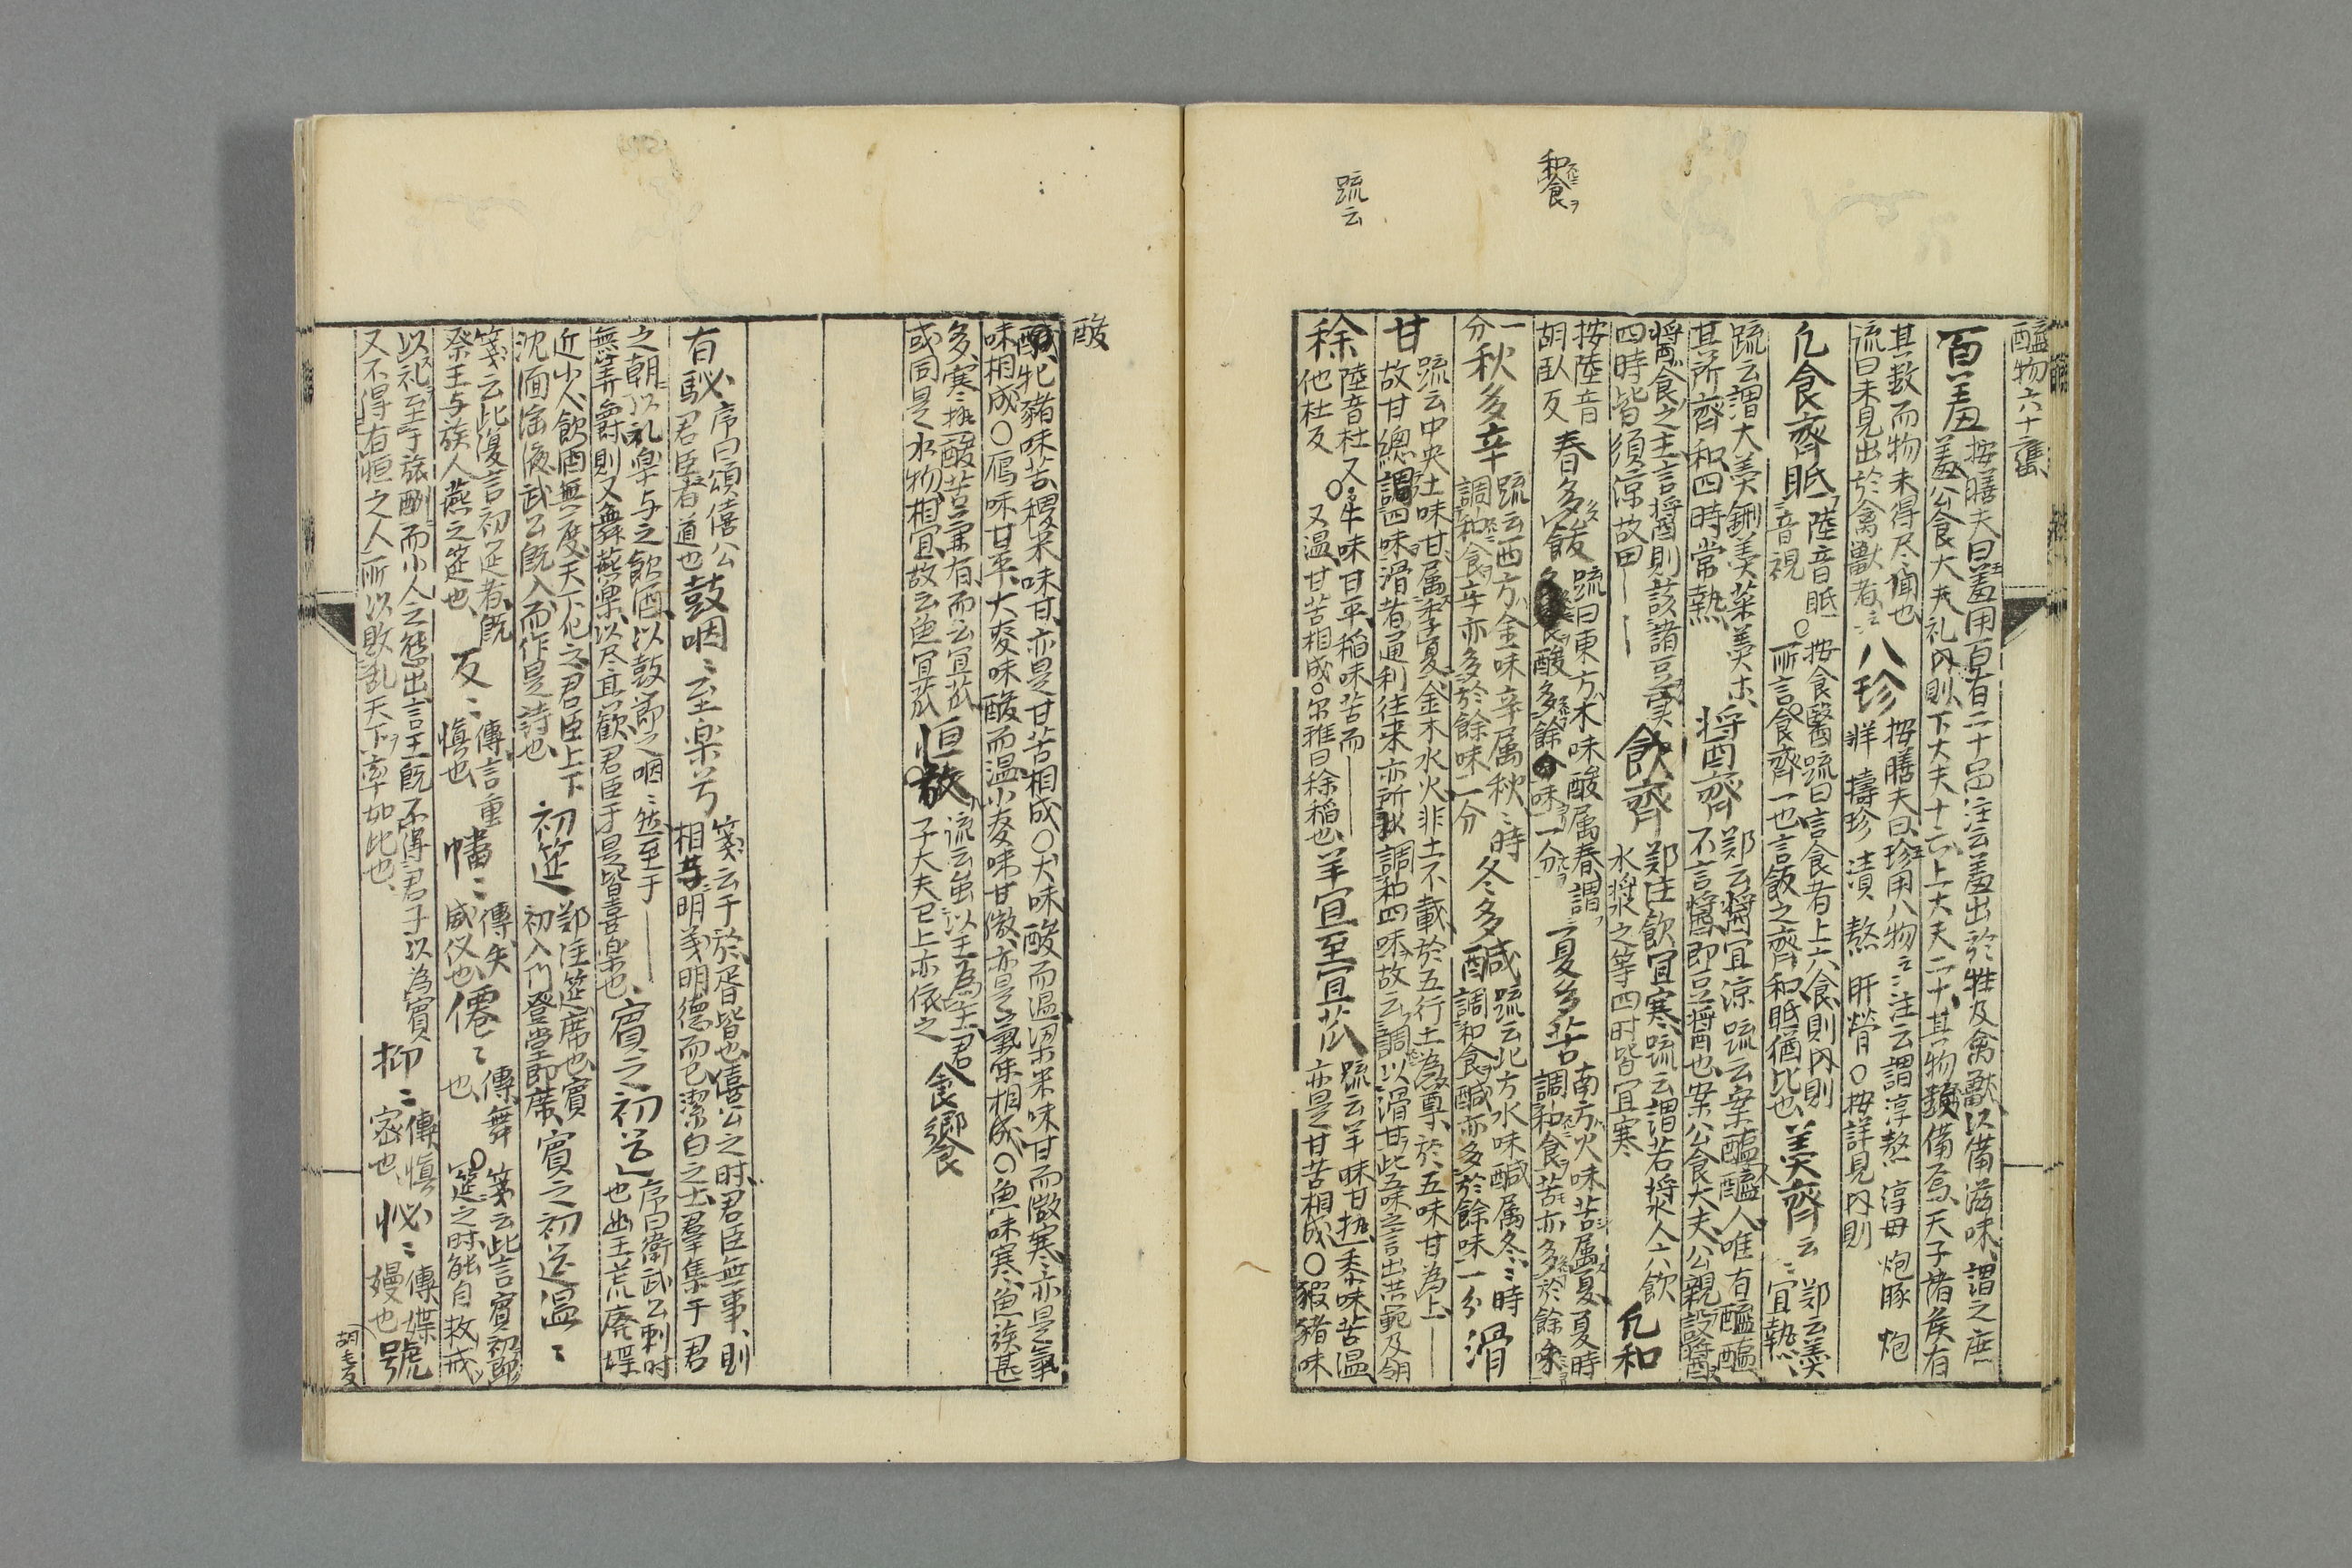 和食
疏云
醢物六十甕
百羞 按膳夫曰羞用百有二十品注云羞出於牲及禽獸以備滋味謂之庶
羞公食大夫礼内則下大夫十六上大夫二十其物備焉天子諸侯有
其数而物未得尽聞也
流曰未見出於禽獸者
八珍 按膳夫曰珍用八物注云謂淳熬 淳母 炮豚 炮
牂 擣珍 漬 熬 肝膋○按詳見内則
凡食齊眡 陸音眡
音視○按食醫疏曰言食者上六食則内則
所言食齊一也言飯之齊和眡猶比也
羹齊 鄭云羹
宜熱
疏云謂大羹鉶羹菜羹
其所齊和四時常熱
将酉齊 鄭云醬宜涼疏云案醢醢人唯有醢醢
不言醬即豆醬也案公食大夫公親設醬
醬食之主言醬則該諸豆実
四時皆須涼故田
飲齊 鄭注飲宜寒疏云謂若漿人六飲
水漿之等四时皆宜寒
凡和
按陸音
胡臥反
春多酸 疏曰東方木味酸属春謂
食酸多餘味一分
夏多苦 南方火味苦属夏夏時
調和食苦亦多於餘味
一分
秋多辛 疏云西方金味辛属秋時
調和食辛亦多於餘味一分
冬多醎 疏云北方水味醎属冬時
調和食醎亦多於餘味一分
滑
甘 疏云中央土味甘属季夏金木水火非土不載於五行土為尊於五味甘為上
故甘總調四味滑者通利往来亦所以調和四味故云調以滑甘此五味之言出洪範及
稌 陸音杜又
他杜反○牛味甘平稲味苦而
又温甘苦相成○尔雅曰稌稲也
羊宜至宜苽 疏云羊味甘熱黍味苦温
亦是甘苦相成○豭猪味
酸
酸牝豬味苦稷米味甘亦是甘苦相成○犬味酸而温梁米味甘而微寒亦是氣
味相成○鴈味甘平大麥味酸而温小麥味甘微亦是氣味相成○魚味寒魚族甚
多寒熱酸苦兼有而云宜苽
或同是水物相宜故云魚宜苽
恒放 流云虽以王為主君
子大夫已上亦依之
食饗
有駜 序曰頌僖公
君臣有道也
鼓咽 至楽兮 箋云于於胥皆也僖公之时君臣無事則
相与明義明德而已潔白之士羣集于君
之朝以礼楽与之飲酒以鼓節之咽然至于
無筭爵則又舞燕楽以尽其歓君臣于是皆喜楽也
賓之初筵 序曰衛武公刺时
也幽王荒廃媟
近小人飲酒無度天下化之君臣上下
沈湎淫液武公既入而作是詩也
初筵 鄭注筵席也賓
初入门登堂即席
賓之初筵温
箋云此復言初筵者既
祭王与族人燕之筵也
反 傳言重
慎也
幡 傳失
威仪也
僊 傳舞
也○箋云此言賓初即
筵之时能自敕戒
以礼至于旅酬而小人之態出言王既不得君子以為賓
又不得有恒之人所以敗乱天下率如此也
抑 傳慎
密也
怭 傳媟
嫚也
號
胡毛反